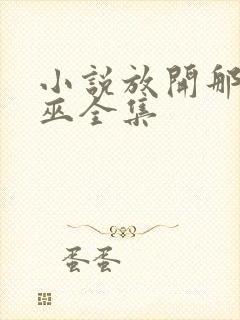 小説放開那
巫全集
蛋蛋